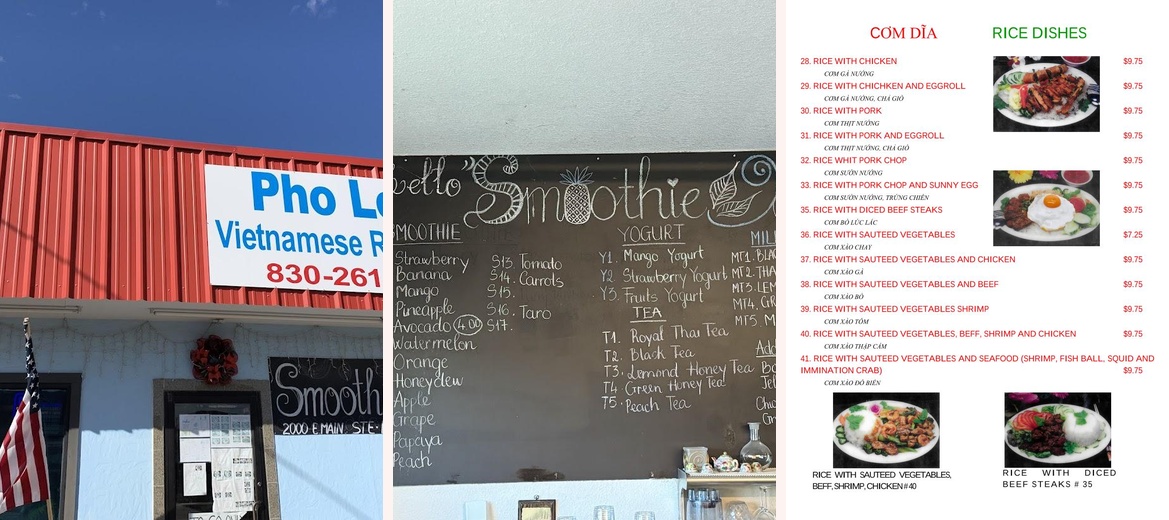 Pho L
Vietnamese R
830-261
Smooth
2000 E MAIN. STE.
ello Smoothie
SMOOTHIE
Strawberry
Banana
Mango
Pineapple
Avocado 4.00
Watermelon
Orange
Honeydew
Apple
Grape
Papaya
Peach
S13. Tomato
S14. Carrots
S15.
S16. Taro
S17.
YOGURT
Y1. Mango Yogurt
Y2 Strawberry Yogurt
Y3. Fruits Yogurt
TEA
T1. Royal Thai Tea
T2. Black Tea
T3. Lemond Honey Tea
T4. Green Honey Tea
T5. Peach Tea
MIL
MT1. BLA
MT2. THA
MT3. LEM
MT4. GR
MT5. M
Add
Bo
Jel
CƠM DĨA
RICE DISHES
28. RICE WITH CHICKEN $9.75
CƠM GÀ NƯỚNG
29. RICE WITH CHICHKEN AND EGGROLL $9.75
CƠM GÀ NƯỚNG, CHẢ GIÒ
30. RICE WITH PORK $9.75
CƠM THỊT NƯỚNG
31. RICE WITH PORK AND EGGROLL $9.75
CƠM THỊT NƯỚNG, CHẢ GIÒ
32. RICE WHIT PORK CHOP $9.75
CƠM SƯỜN NƯỚNG
33. RICE WITH PORK CHOP AND SUNNY EGG $9.75
CƠM SƯỜN NƯỚNG, TRỨNG CHIÊN
35. RICE WITH DICED BEEF STEAKS $9.75
CƠM BÒ LÚC LẮC
36. RICE WITH SAUTEED VEGETABLES $7.25
CƠM XÀO CHAY
37. RICE WITH SAUTEED VEGETABLES AND CHICKEN $9.75
CƠM XÀO GÀ
38. RICE WITH SAUTEED VEGETABLES AND BEEF $9.75
CƠM XÀO BÒ
39. RICE WITH SAUTEED VEGETABLES SHRIMP $9.75
CƠM XÀO TÔM
40. RICE WITH SAUTEED VEGETABLES, BEEF, SHRIMP AND CHICKEN $9.75
CƠM XÀO THẬP CẨM
41. RICE WITH SAUTEED VEGETABLES AND SEAFOOD (SHRIMP, FISH BALL, SQUID AND
IMMINATION CRAB) $9.75
CƠM XÀO ĐỒ BIỂN
RICE WITH SAUTEED VEGETABLES,
BEFF, SHRIMP, CHICKEN #40
RICE WITH DICED
BEEF STEAKS # 35